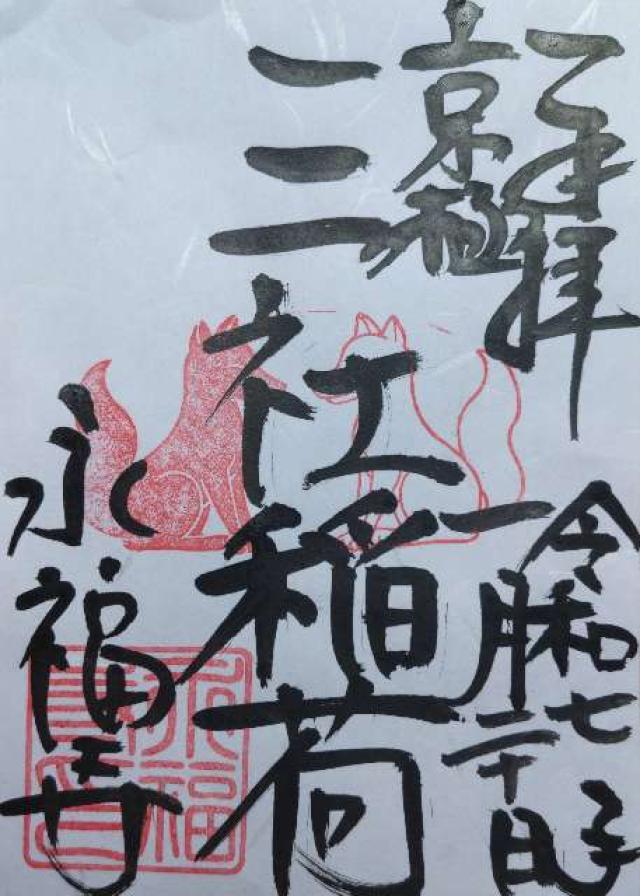 奉拝
京極
三社稲荷
令和七年
一月二十日
永福寺
永福